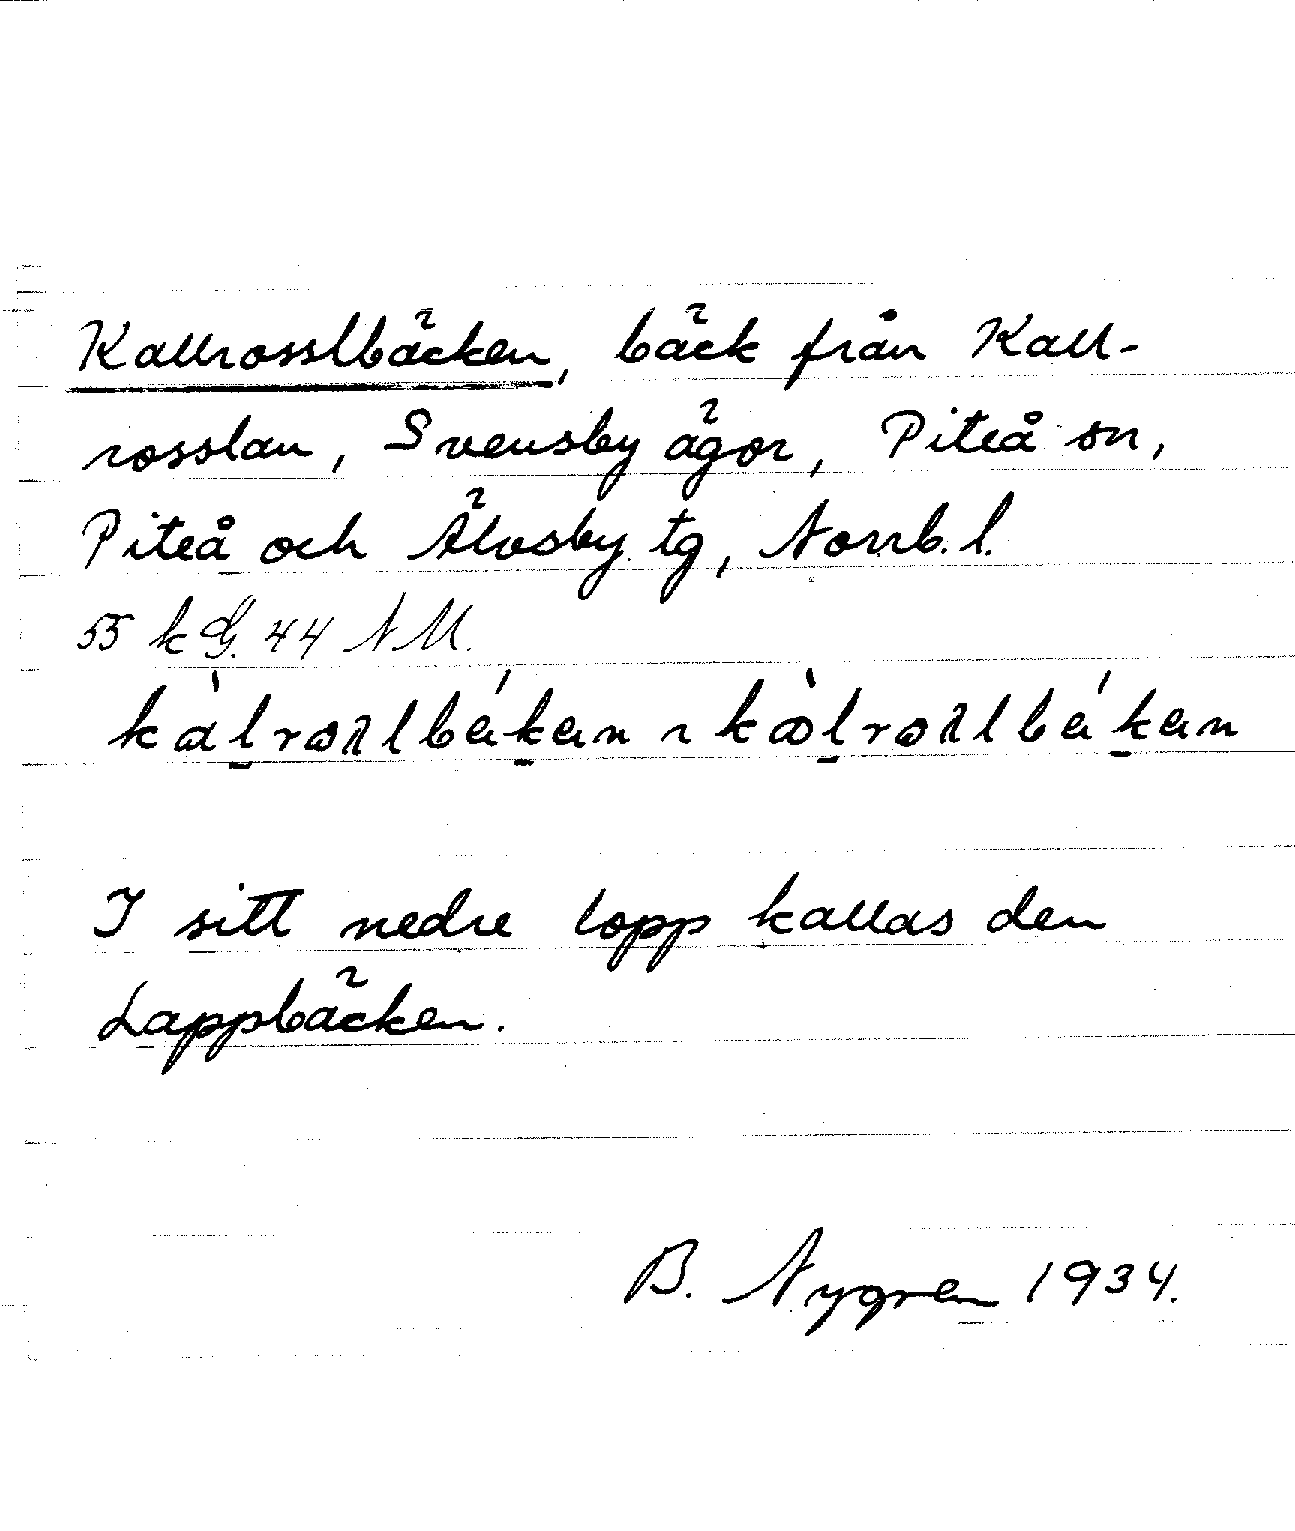 Kallrosslbäcken, bäck från Kall-
rosslan, Svensby ägor, Piteå sn,
Piteå och Älvsby tg, Norrb. l.
55 k G. 44 NM.
I sitt nedre lopp kallas den
Lappbäcken.
B. Nygren 1934.